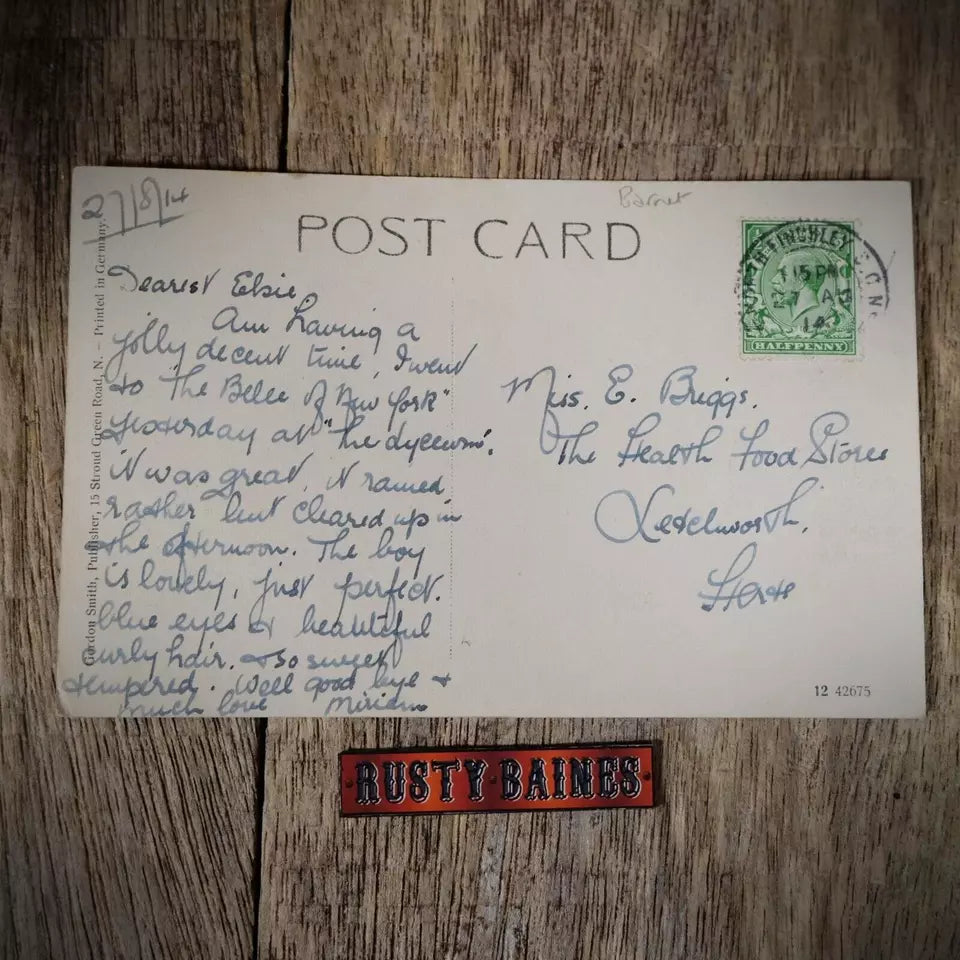 27/8/14
Barnet
POST CARD
NORTH FINCHLEY
15 PM
27 AU
14
HALFPENNY
Dearest Elsie
Am having a
jolly decent time, I went
to "The Belle of New York"
yesterday at "the Lyceum".
it was great, it rained
rather but cleared up in
the afternoon. The boy
is lovely, just perfect.
blue eyes & beautiful
curly hair. & so sweet
tempered. Well good bye &
much love Miriam
Miss. E. Briggs.
The Health Food Stores
Letchworth.
Herts
Gordon Smith, Publisher, 15 Stroud Green Road, N. – Printed in Germany.
12 42675
RUSTY BAINES